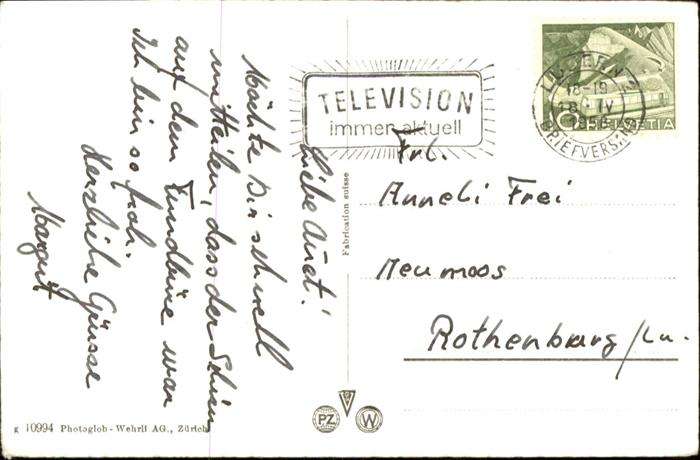 Liebe Anet!
Möchte Dir schnell
mitteilen, dass der Schirm
auf dem Fundbüro war.
Ich bin so froh.
Herzliche Grüsse
Margrit
TELEVISION
immer aktuell
LUZERN 2
18-19
IV
BRIEFVERS.
HELVETIA
Frl.
Anneli Frei
Neumoos
Rothenburg/Lu.
Fabrication suisse
PZ
W
g 10994 Photoglob-Wehrli AG., Zürich